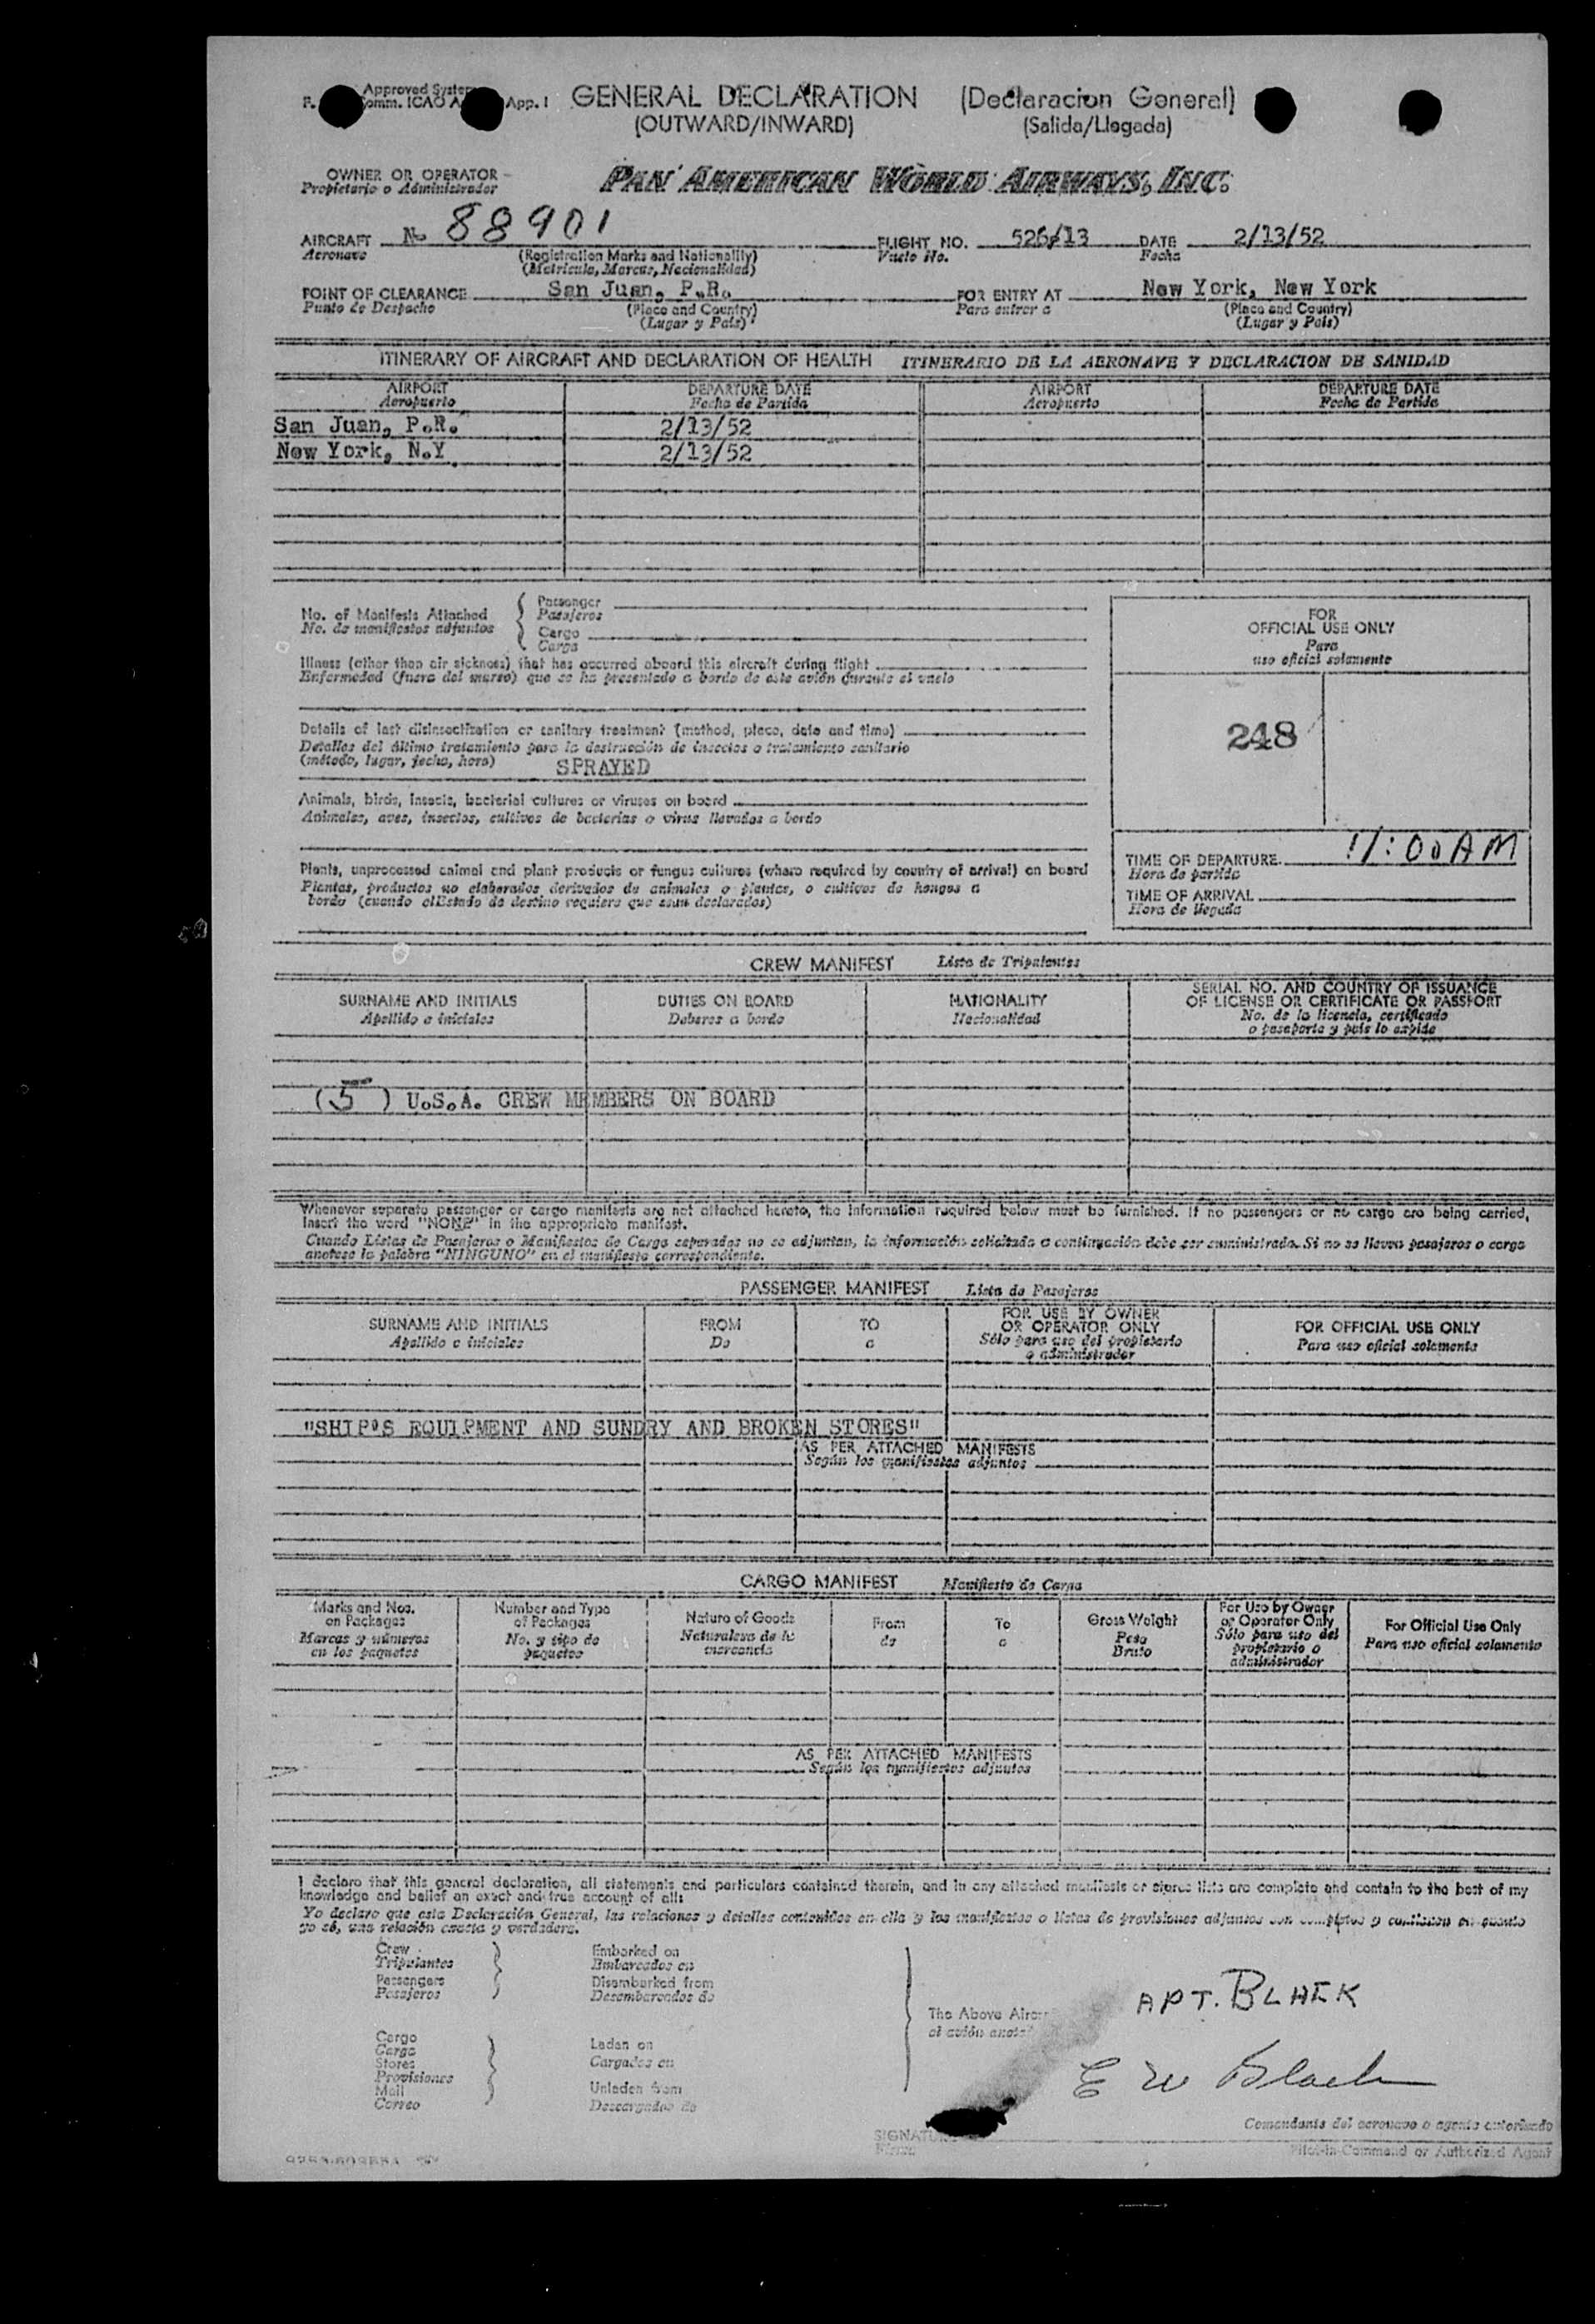 Approved System
Comm. ICAO App. 1
GENERAL DECLARATION (Declaracion General)
(OUTWARD/INWARD) (Salida/Llegada)
OWNER OR OPERATOR
Propietario o Administrador
PAN AMERICAN WORLD AIRWAYS, INC.
AIRCRAFT N- 88901 FLIGHT NO. 526/13 DATE 2/13/52
Aeronave (Registration Marks and Nationality) Vuelo No. Fecha
(Matricula, Marcas, Nacionalidad)
POINT OF CLEARANCE San Juan, P.R. FOR ENTRY AT New York, New York
Punto de Despacho (Place and Country) Para entrar a (Place and Country)
(Lugar y País) (Lugar y País)
ITINERARY OF AIRCRAFT AND DECLARATION OF HEALTH ITINERARIO DE LA AERONAVE Y DECLARACION DE SANIDAD
AIRPORT DEPARTURE DATE AIRPORT DEPARTURE DATE
Aeropuerto Fecha de Partida Aeropuerto Fecha de Partida
San Juan, P.R. 2/13/52
New York, N.Y 2/13/52
No. of Manifests Attached
No. de manifiestos adjuntos
Passenger
Pasajeros
Cargo
Carga
FOR
OFFICIAL USE ONLY
Para
uso oficial solamente
Illness (other than air sickness) that has occurred aboard this aircraft during flight
Enfermedad (fuera del mareo) que se ha presentado a bordo de este avión durante el vuelo
248
Details of last disinsectization or sanitary treatment (method, place, date and time)
Detalles del último tratamiento para la destrucción de insectos o tratamiento sanitario
(método, lugar, fecha, hora) SPRAYED
Animals, birds, insects, bacterial cultures or viruses on board
Animales, aves, insectos, cultivos de bacterias o virus llevados a bordo
Plants, unprocessed animal and plant products or fungus cultures (where required by country of arrival) on board
Plantas, productos no elaborados derivados de animales o plantas, o cultivos de hongos a
bordo (cuando el Estado de destino requiera que sean declarados)
TIME OF DEPARTURE 11:00 AM
Hora de partida
TIME OF ARRIVAL
Hora de llegada
CREW MANIFEST Lista de Tripulantes
SURNAME AND INITIALS DUTIES ON BOARD NATIONALITY SERIAL NO. AND COUNTRY OF ISSUANCE
OF LICENSE OR CERTIFICATE OR PASSPORT
Apellido e iniciales Deberes a bordo Nacionalidad No. de la licencia, certificado
o pasaporte y país lo expide
(5) U.S.A. CREW MEMBERS ON BOARD
Whenever separate passenger or cargo manifests are not attached hereto, the information required below must be furnished. If no passengers or no cargo are being carried,
insert the word "NONE" in the appropriate manifest.
Cuando Listas de Pasajeros o Manifiestos de Carga separados no se adjuntan, la información solicitada a continuación debe ser suministrada. Si no se llevan pasajeros o carga
anotese la palabra "NINGUNO" en el manifiesto correspondiente.
PASSENGER MANIFEST Lista de Pasajeros
SURNAME AND INITIALS FROM TO FOR USE BY OWNER
OR OPERATOR ONLY FOR OFFICIAL USE ONLY
Apellido e iniciales De a Sólo para uso del propietario
o administrador Para uso oficial solamente
"SHIP'S EQUIPMENT AND SUNDRY AND BROKEN STORES"
AS PER ATTACHED MANIFESTS
Según los manifiestos adjuntos
CARGO MANIFEST Manifiesto de Carga
Marks and Nos.
on Packages
Marcas y números
en los paquetes
Number and Type
of Packages
No. y tipo de
paquetes
Nature of Goods
Naturaleza de la
mercancía
From
de
To
a
Gross Weight
Peso
Bruto
For Use by Owner
or Operator Only
Sólo para uso del
propietario o
administrador
For Official Use Only
Para uso oficial solamente
AS PER ATTACHED MANIFESTS
Según los manifiestos adjuntos
I declare that this general declaration, all statements and particulars contained therein, and in any attached manifests or stores lists are complete and contain to the best of my
knowledge and belief an exact and true account of all:
Yo declaro que esta Declaración General, las relaciones y detalles contenidos en ella y los manifiestos o listas de provisiones adjuntos son completos y contienen en cuanto
yo sé, una relación exacta y verdadera.
Crew
Tripulantes
Passengers
Pasajeros
Embarked on
Embarcados en
Disembarked from
Desembarcados de
Cargo
Carga
Stores
Provisiones
Mail
Correo
Laden on
Cargados en
Unladen from
Descargados de
The Above Aircr
el avión anota
APT. BLACK
E W Black
Comandante del aeronave o agente autorizado
SIGNATU
Firma
Pilot-in-Command or Authorized Agent